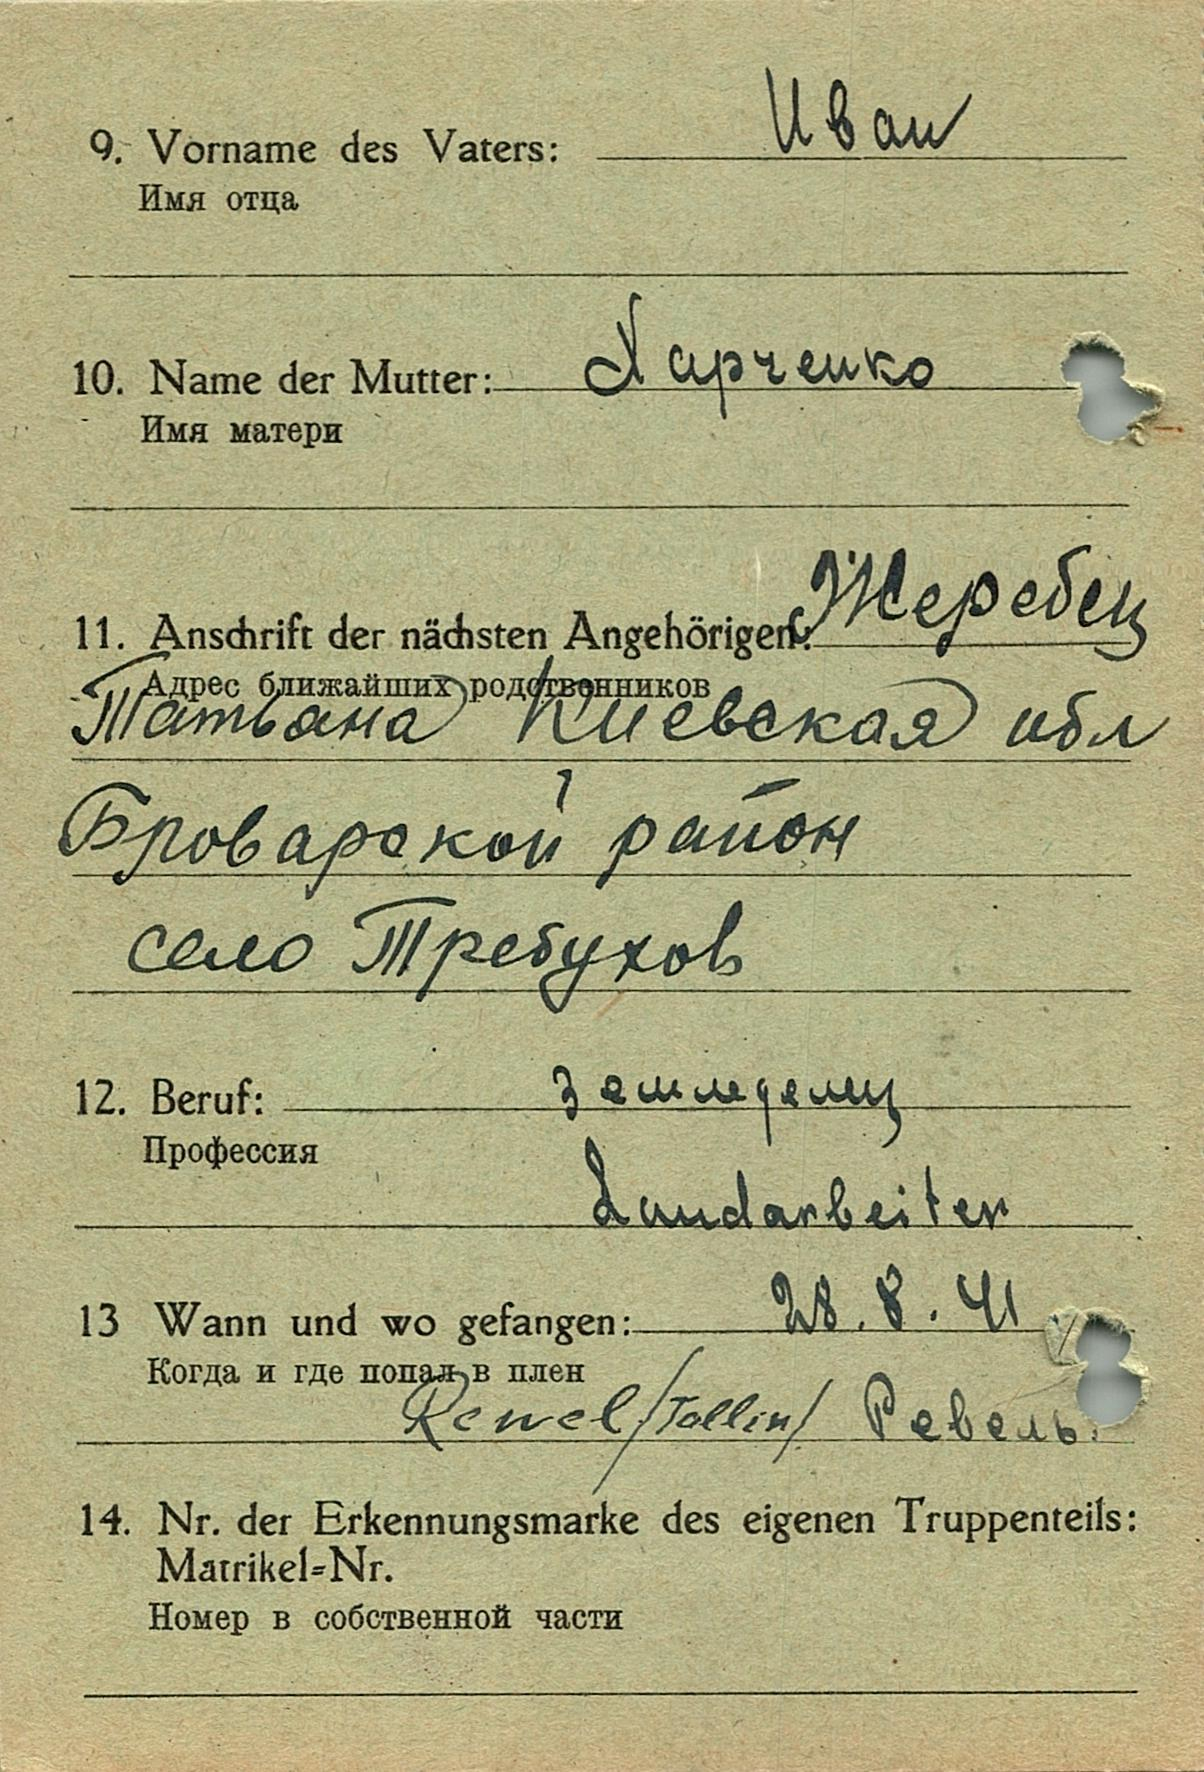 9. Vorname des Vaters: Иван
Имя отца
10. Name der Mutter: Харченко
Имя матери
11. Anschrift der nächsten Angehörigen: Жеребец
Адрес ближайших родственников
Татьяна Киевская обл
Броварской район
село Требухов
12. Beruf: земледелец
Профессия
Landarbeiter
13 Wann und wo gefangen: 28.8.41
Когда и где попал в плен
Rewel /Tallin/ Ревель.
14. Nr. der Erkennungsmarke des eigenen Truppenteils:
Matrikel-Nr.
Номер в собственной части